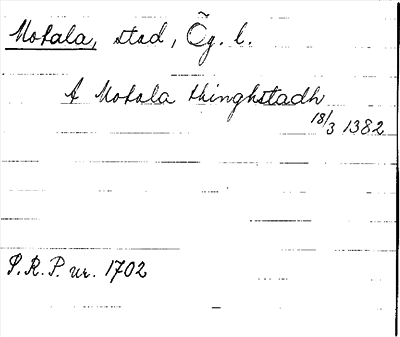 Motala, stad, Ög. l.
A Motala thinghstadh
18/3 1382
P.R.P. nr. 1702